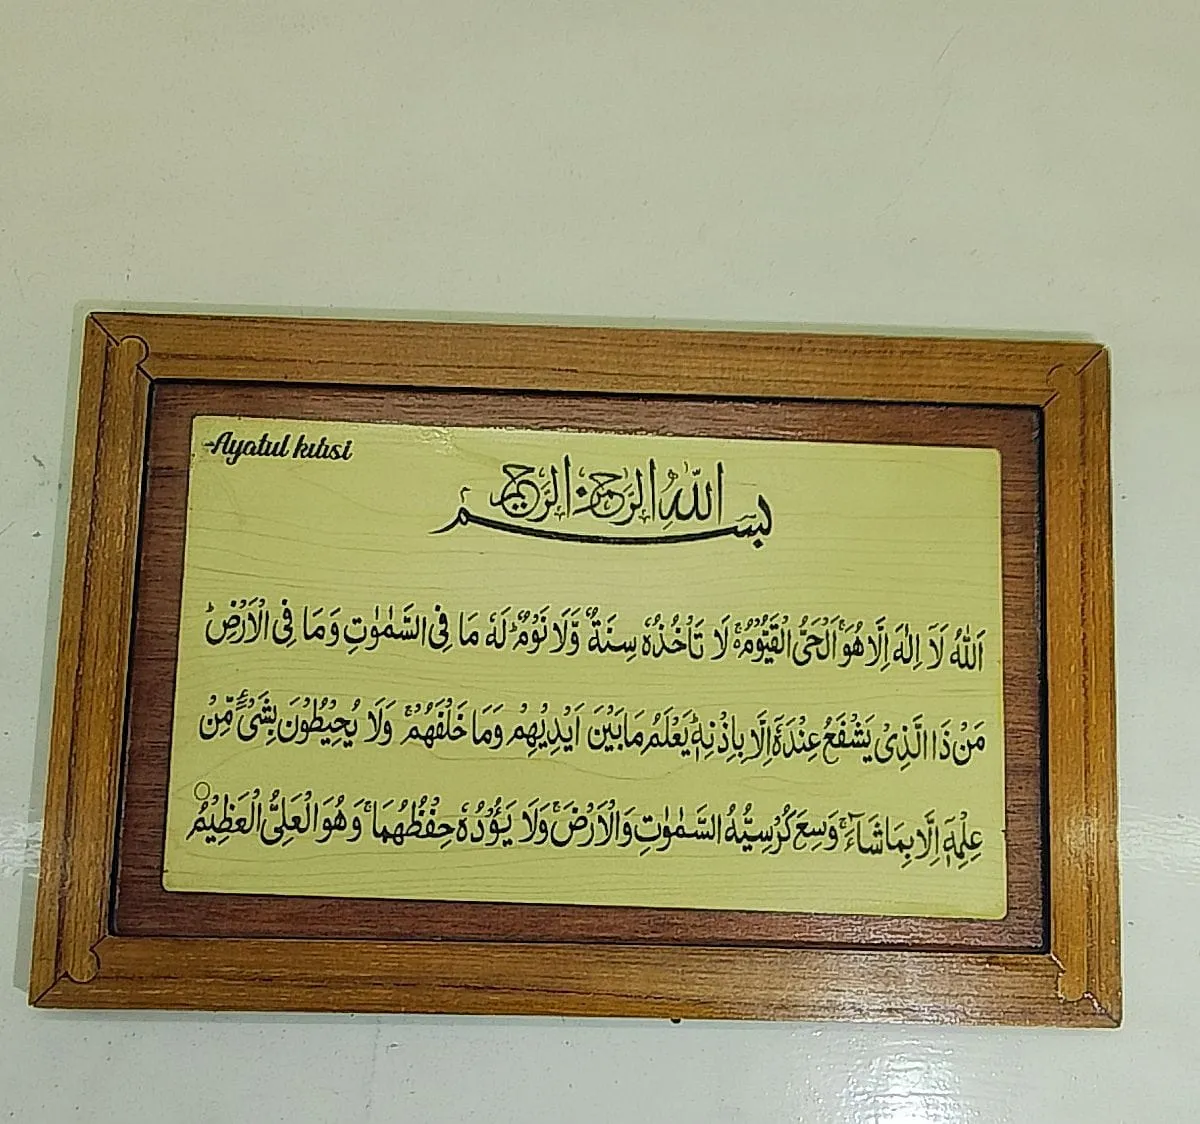 Ayatul kursi
بسم الله الرحمن الرحيم
اَللّٰهُ لَاۤ اِلٰهَ اِلَّا هُوَۚ اَلْحَیُّ الْقَیُّوْمُ۬ۚ لَا تَاْخُذُهٗ سِنَةٌ وَّلَا نَوْمٌؕ لَهٗ مَا فِی السَّمٰوٰتِ وَمَا فِی الْاَرْضِؕ
مَنْ ذَا الَّذِیْ یَشْفَعُ عِنْدَهٗۤ اِلَّا بِاِذْنِهٖؕ یَعْلَمُ مَا بَیْنَ اَیْدِیْهِمْ وَمَا خَلْفَهُمْۚ وَلَا یُحِیْطُوْنَ بِشَیْءٍ مِّنْ
عِلْمِهٖۤ اِلَّا بِمَا شَآءَۚ وَسِعَ كُرْسِیُّهُ السَّمٰوٰتِ وَالْاَرْضَۚ وَلَا یَـُٔوْدُهٗ حِفْظُهُمَاۚ وَهُوَ الْعَلِیُّ الْعَظِیْمُ